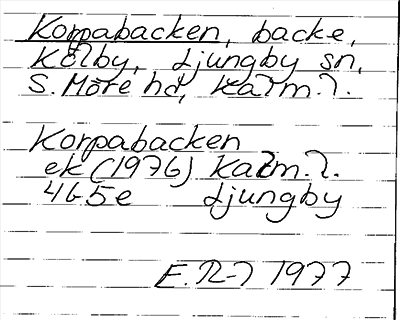 Korpabacken, backe,
Kölby, Ljungby sn,
S. Möre hd, Kalm. l.
Korpabacken
ek (1976) Kalm. l.
4G5e Ljungby
E. R-J 1977